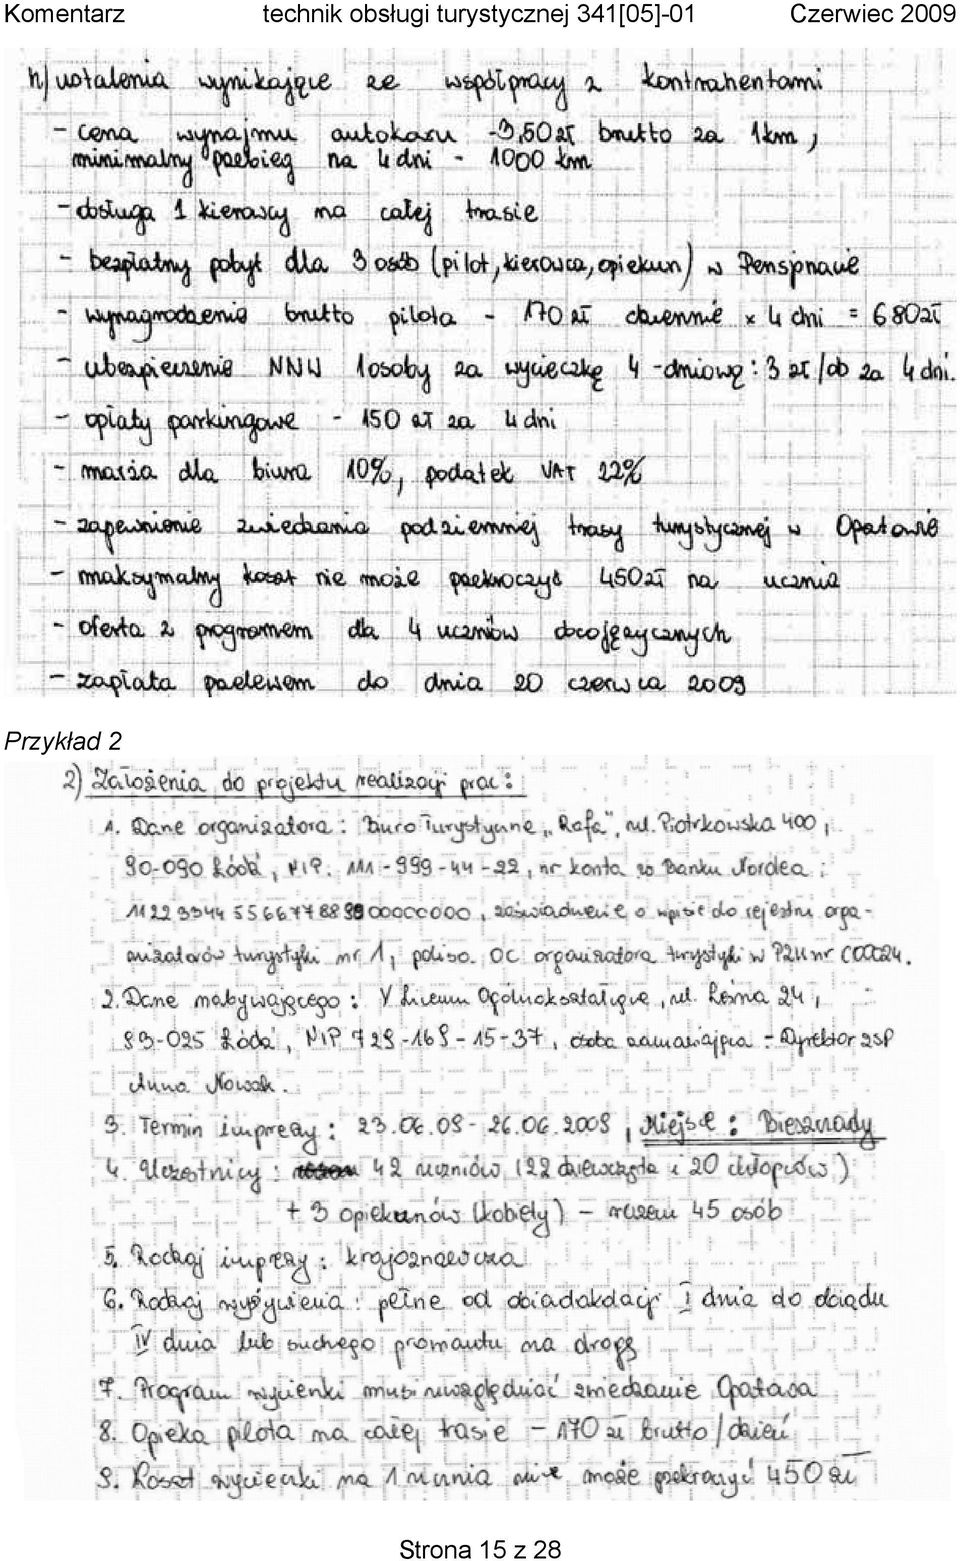 Komentarz technik obsługi turystycznej 341[05]-01 Czerwiec 2009
h) ustalenia wynikające ze współpracy z kontrahentami
- cena wynajmu autokaru - 3,50 zł brutto za 1km,
minimalny przebieg na 4 dni - 1000 km
- obsługa 1 kierowcy na całej trasie
- bezpłatny pobyt dla 3 osób (pilot, kierowca, opiekun) w Pensjonacie
- wynagrodzenie brutto pilota - 170 zł dziennie x 4 dni = 680zł
- ubezpieczenie NNW 1osoby za wycieczkę 4 -dniową: 3 zł/ob za 4 dni.
- opłaty parkingowe - 150 zł za 4 dni
- marża dla biura 10%, podatek VAT 22%
- zapewnienie zwiedzania podziemnej trasy turystycznej w Opatowie
- maksymalny koszt nie może przekroczyć 450zł na ucznia
- oferta z programem dla 4 uczniów obcojęzycznych
- zapłata przelewem do dnia 20 czerwca 2009
Przykład 2
2) Założenia do projektu realizacji prac:
1. Dane organizatora: Biuro Turystyczne "Rafa", ul. Piotrkowska 400,
90-090 Łódź, NIP: 111-999-44-22, nr konta w Banku Nordea:
zaświadczenie o wpisie do rejestru orga-
nizatorów turystyki nr 1, polisa OC organizatora turystyki w PZU nr 000024.
2. Dane nabywającego: V Liceum Ogólnokształcące, ul. Leśna 24,
93-025 Łódź, NIP 729-169-15-37, osoba zamawiająca - Dyrektor ZSP
Anna Nowak.
3. Termin imprezy: 23.06.09 - 26.06.2009, Miejsce: Bieszczady
4. Uczestnicy: 42 uczniów (22 dziewczęta i 20 chłopców)
+ 3 opiekunów (kobiety) - razem 45 osób
5. Rodzaj imprezy: krajoznawcza
6. Rodzaj wyżywienia: pełne od obiadokolacji I dnia do obiadu
IV dnia lub suchego prowiantu na drogę
7. Program wycieczki musi uwzględniać zwiedzanie Opatowa
8. Opieka pilota na całej trasie - 170 zł brutto/dzień
9. Koszt wycieczki na 1 ucznia nie może przekroczyć 450 zł
Strona 15 z 28